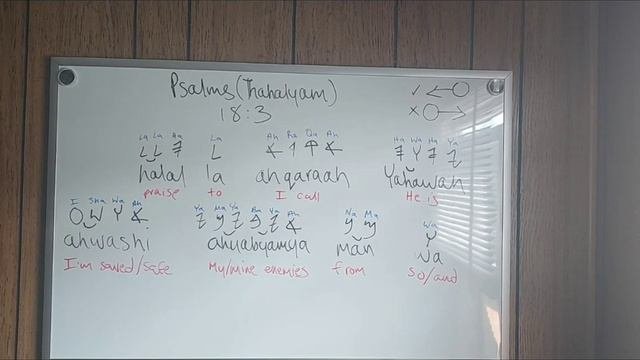 Psalms (Thahalyam)
18:3
La La Ha La Ah Ra Qa Ah Ha Wa Ha Ya
𐤄𐤋𐤋 𐤋 𐤀𐤒𐤓𐤀 𐤉𐤄𐤅𐤄
halal la ahqaraah Yahawah
praise to I call He is
I Sha Wa Ah Ya Ma Ya Ba Ya Ah Na Ma Wa
𐤀𐤅𐤔𐤏 𐤀𐤉𐤁𐤉𐤌𐤉 𐤌𐤍 𐤅
ahwashi ahyabyamya man wa
I'm saved/safe My/mine enemies from so/and